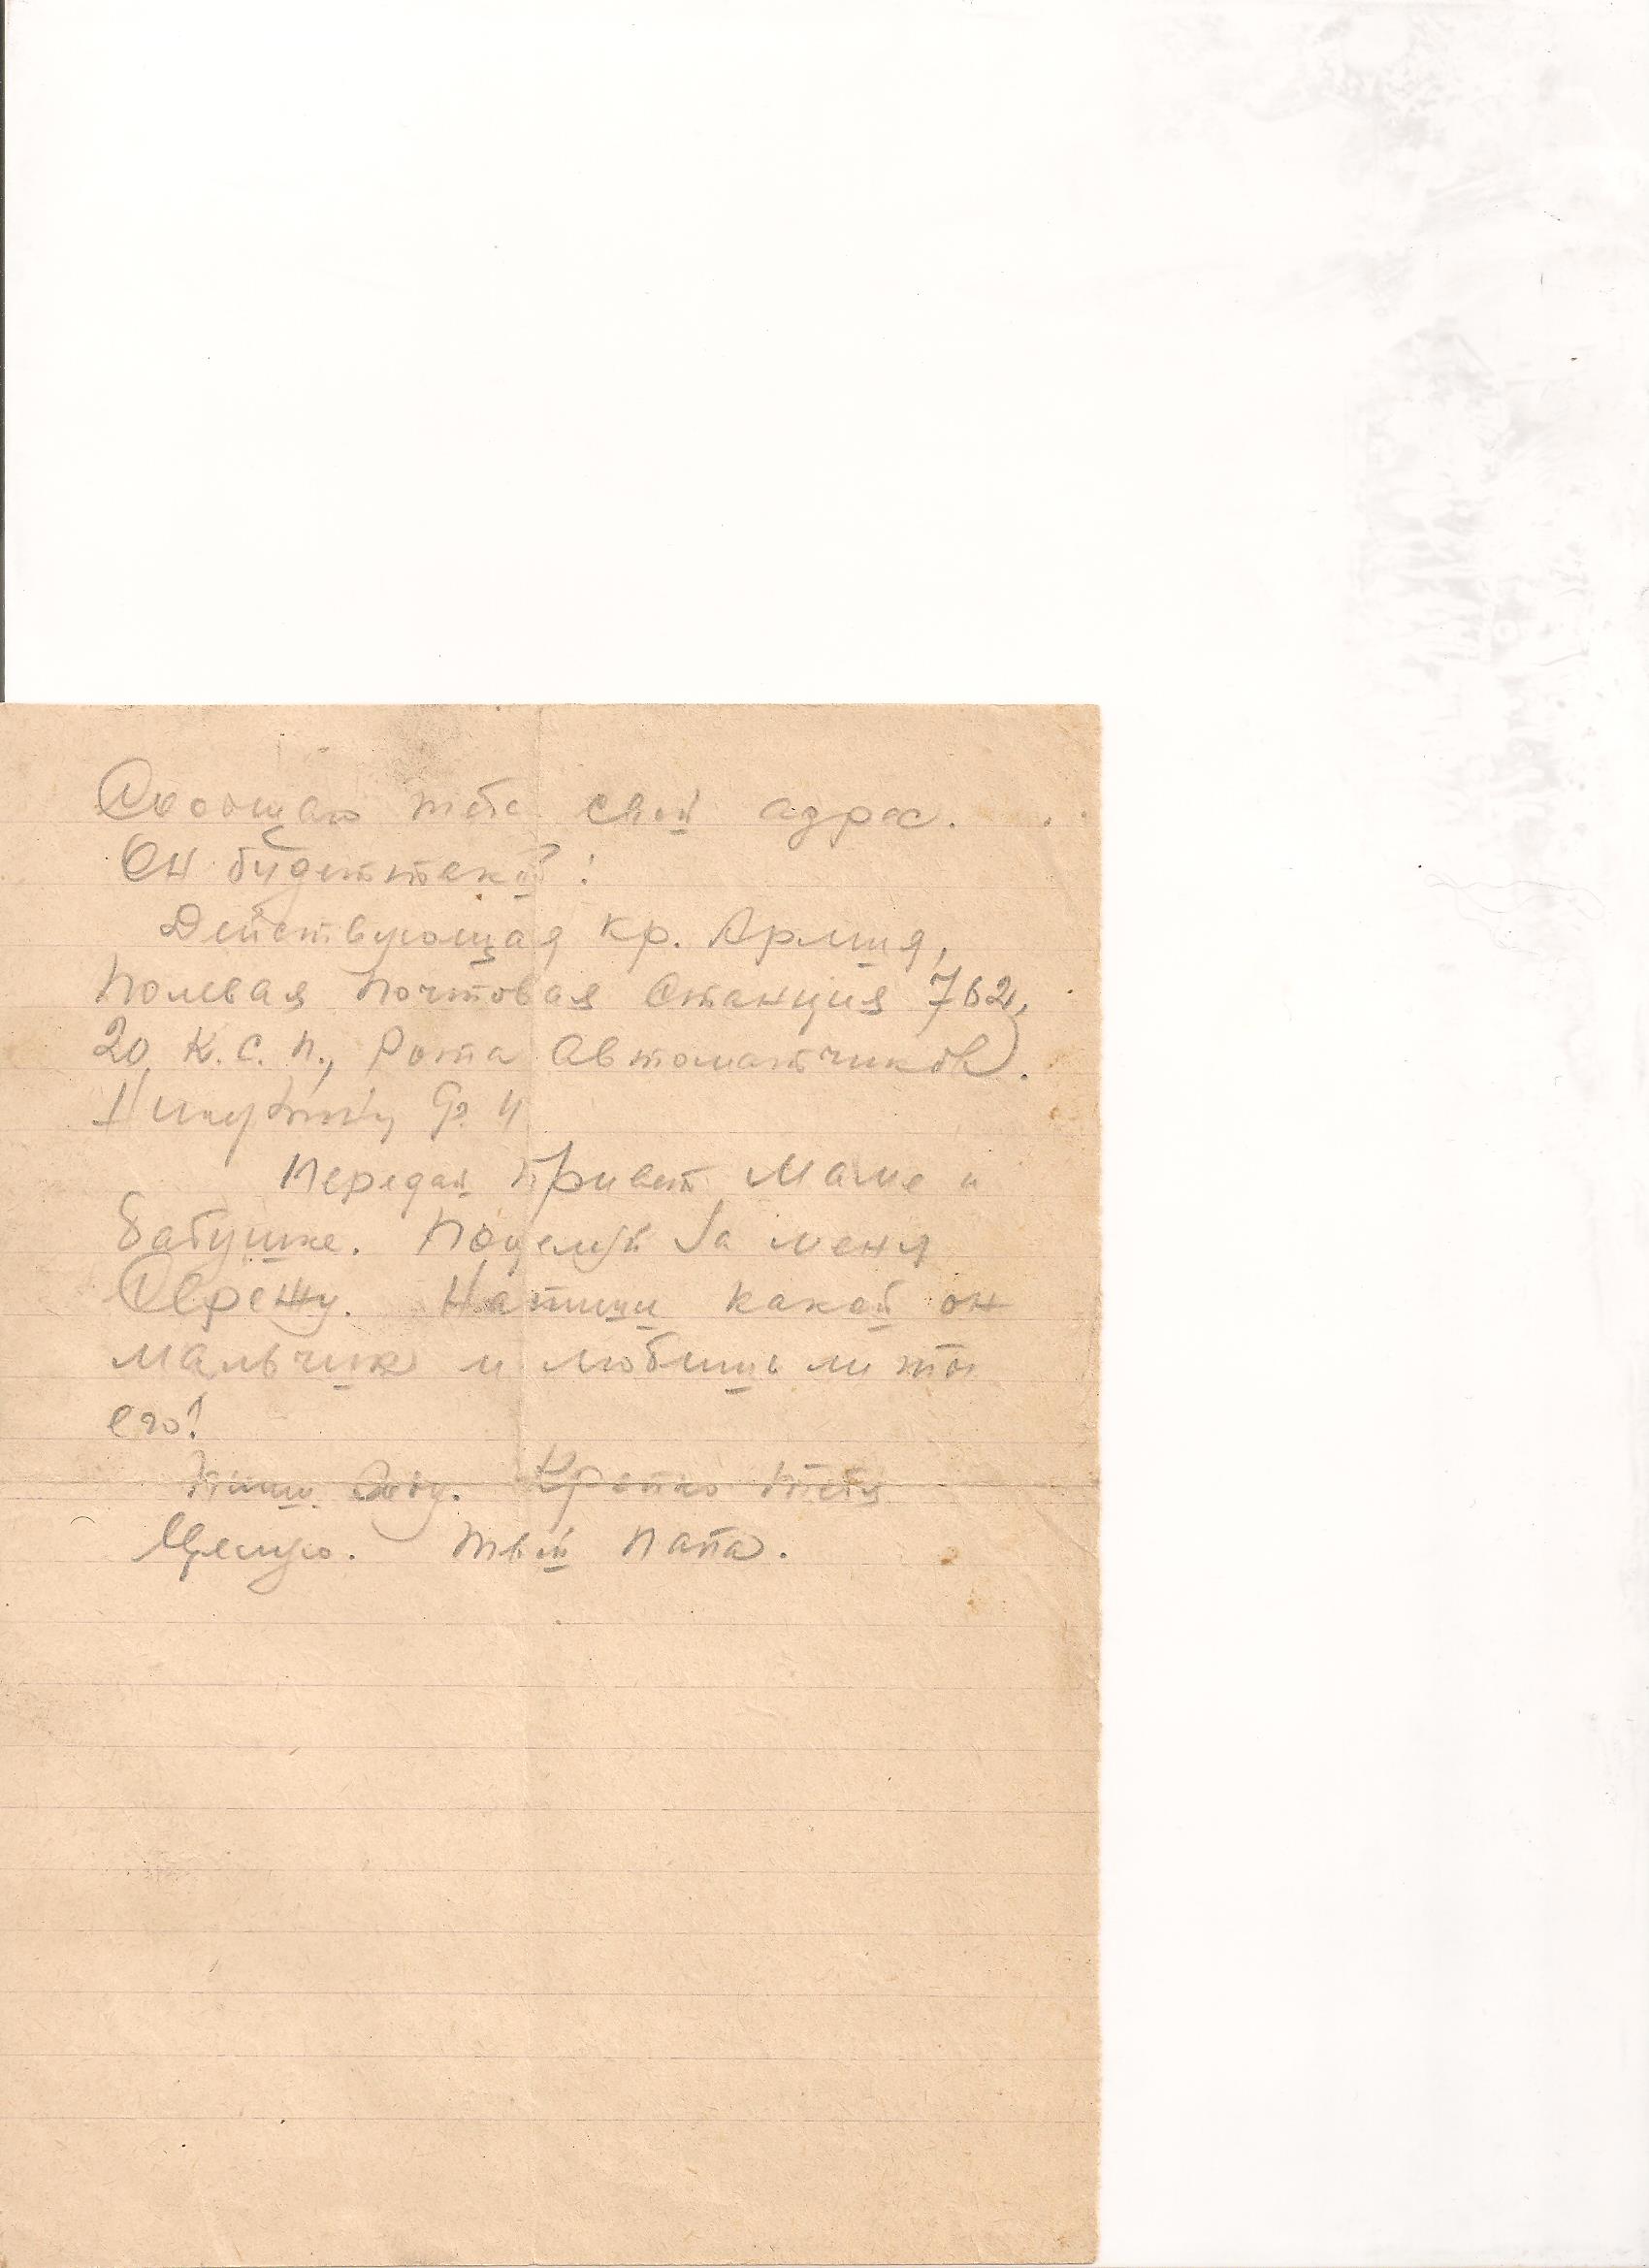 Сообщаю тебе свой адрес.
Он будет такой:
Действующая кр. Армия,
Полевая почтовая станция 762,
20 К.С.П., Рота Автоматчиков.
Передай привет Маме и
бабушке. Поцелуй за меня
Сережу. Напиши какой он
мальчик и любишь ли ты
его?
Пиши Жду. Крепко тебя
Целую. Твой папа.